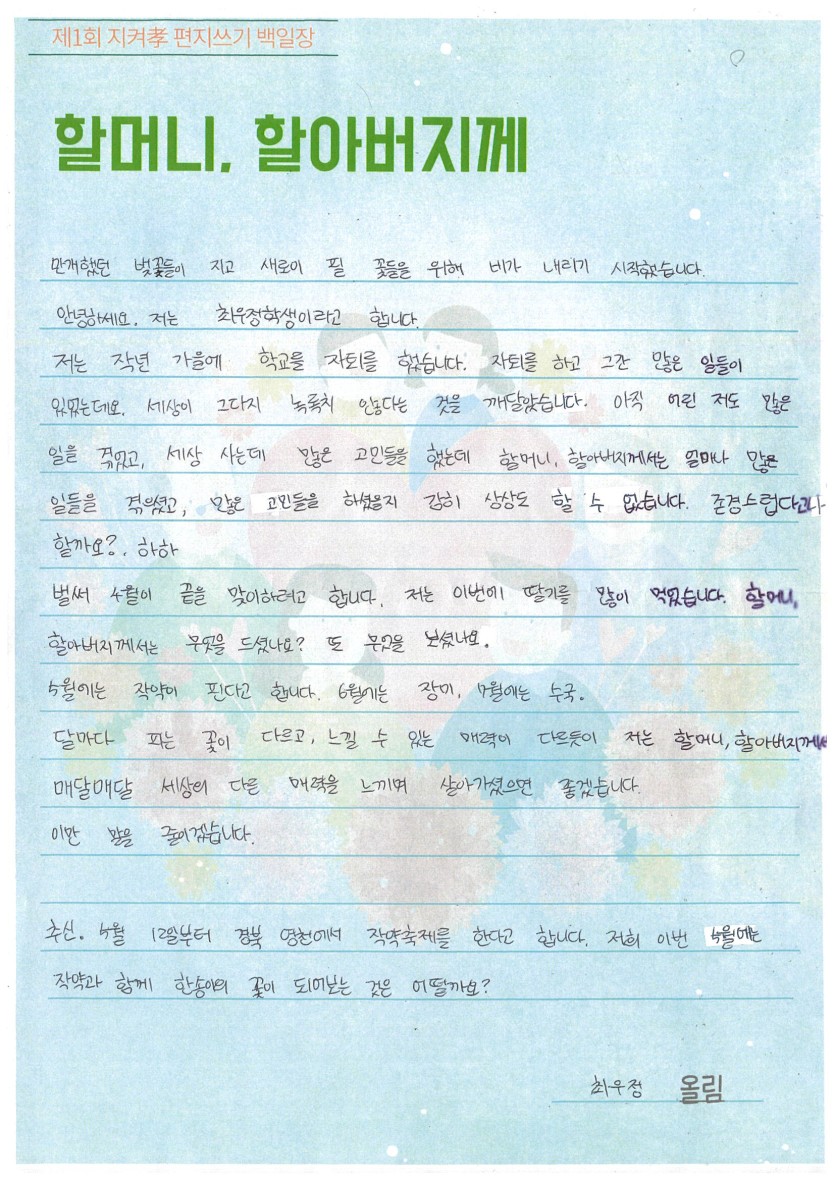 제1회 지켜孝 편지쓰기 백일장
할머니, 할아버지께
만개했던 벚꽃들이 지고 새로이 필 꽃들을 위해 비가 내리기 시작했습니다.
안녕하세요. 저는 최우정학생이라고 합니다.
저는 작년 가을에 학교를 자퇴를 했습니다. 자퇴를 하고 그간 많은 일들이
있었는데요. 세상이 그다지 녹록치 않다는 것을 깨달았습니다. 아직 어린 저도 많은
일을 겪었고, 세상 사는데 많은 고민들을 했는데 할머니, 할아버지께서는 얼마나 많은
일들을 겪으셨고, 많은 고민들을 하셨을지 감히 상상도 할 수 없습니다. 존경스럽다고나
할까요?. 하하
벌써 4월이 끝을 맞이하려고 합니다. 저는 이번에 딸기를 많이 먹었습니다. 할머니,
할아버지께서는 무엇을 드셨나요? 또 무엇을 보셨나요.
5월에는 작약이 핀다고 합니다. 6월에는 장미, 7월에는 수국.
달마다 피는 꽃이 다르고, 느낄 수 있는 매력이 다르듯이 저는 할머니, 할아버지께서
매달매달 세상의 다른 매력을 느끼며 살아가셨으면 좋겠습니다.
이만 말을 줄이겠습니다.
추신. 5월 12일부터 경북 영천에서 작약축제를 한다고 합니다. 저희 이번 5월에는
작약과 함께 한송이의 꽃이 되어보는 것은 어떨까요?
최우정 올림